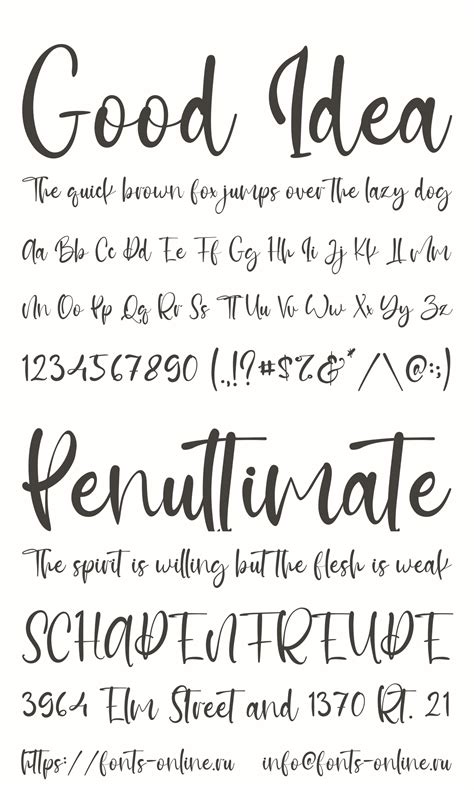 Good Idea
The quick brown fox jumps over the lazy dog
Aa Bb Cc Dd Ee Ff Gg Hh Ii Jj Kk Ll Mm
Nn Oo Pp Qq Rr Ss Tt Uu Vv Ww Xx Yy Zz
1234567890 (.,!?#$%&* /\@:;)
Penultimate
The spirit is willing but the flesh is weak
SCHADENFREUDE
3964 Elm Street and 1370 Rt. 21
https://fonts-online.ru info@fonts-online.ru